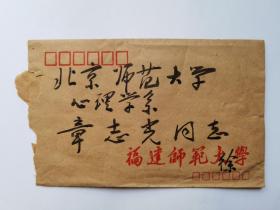 北京师范大学
心理学系
章志光同志
福建師範大學
徐